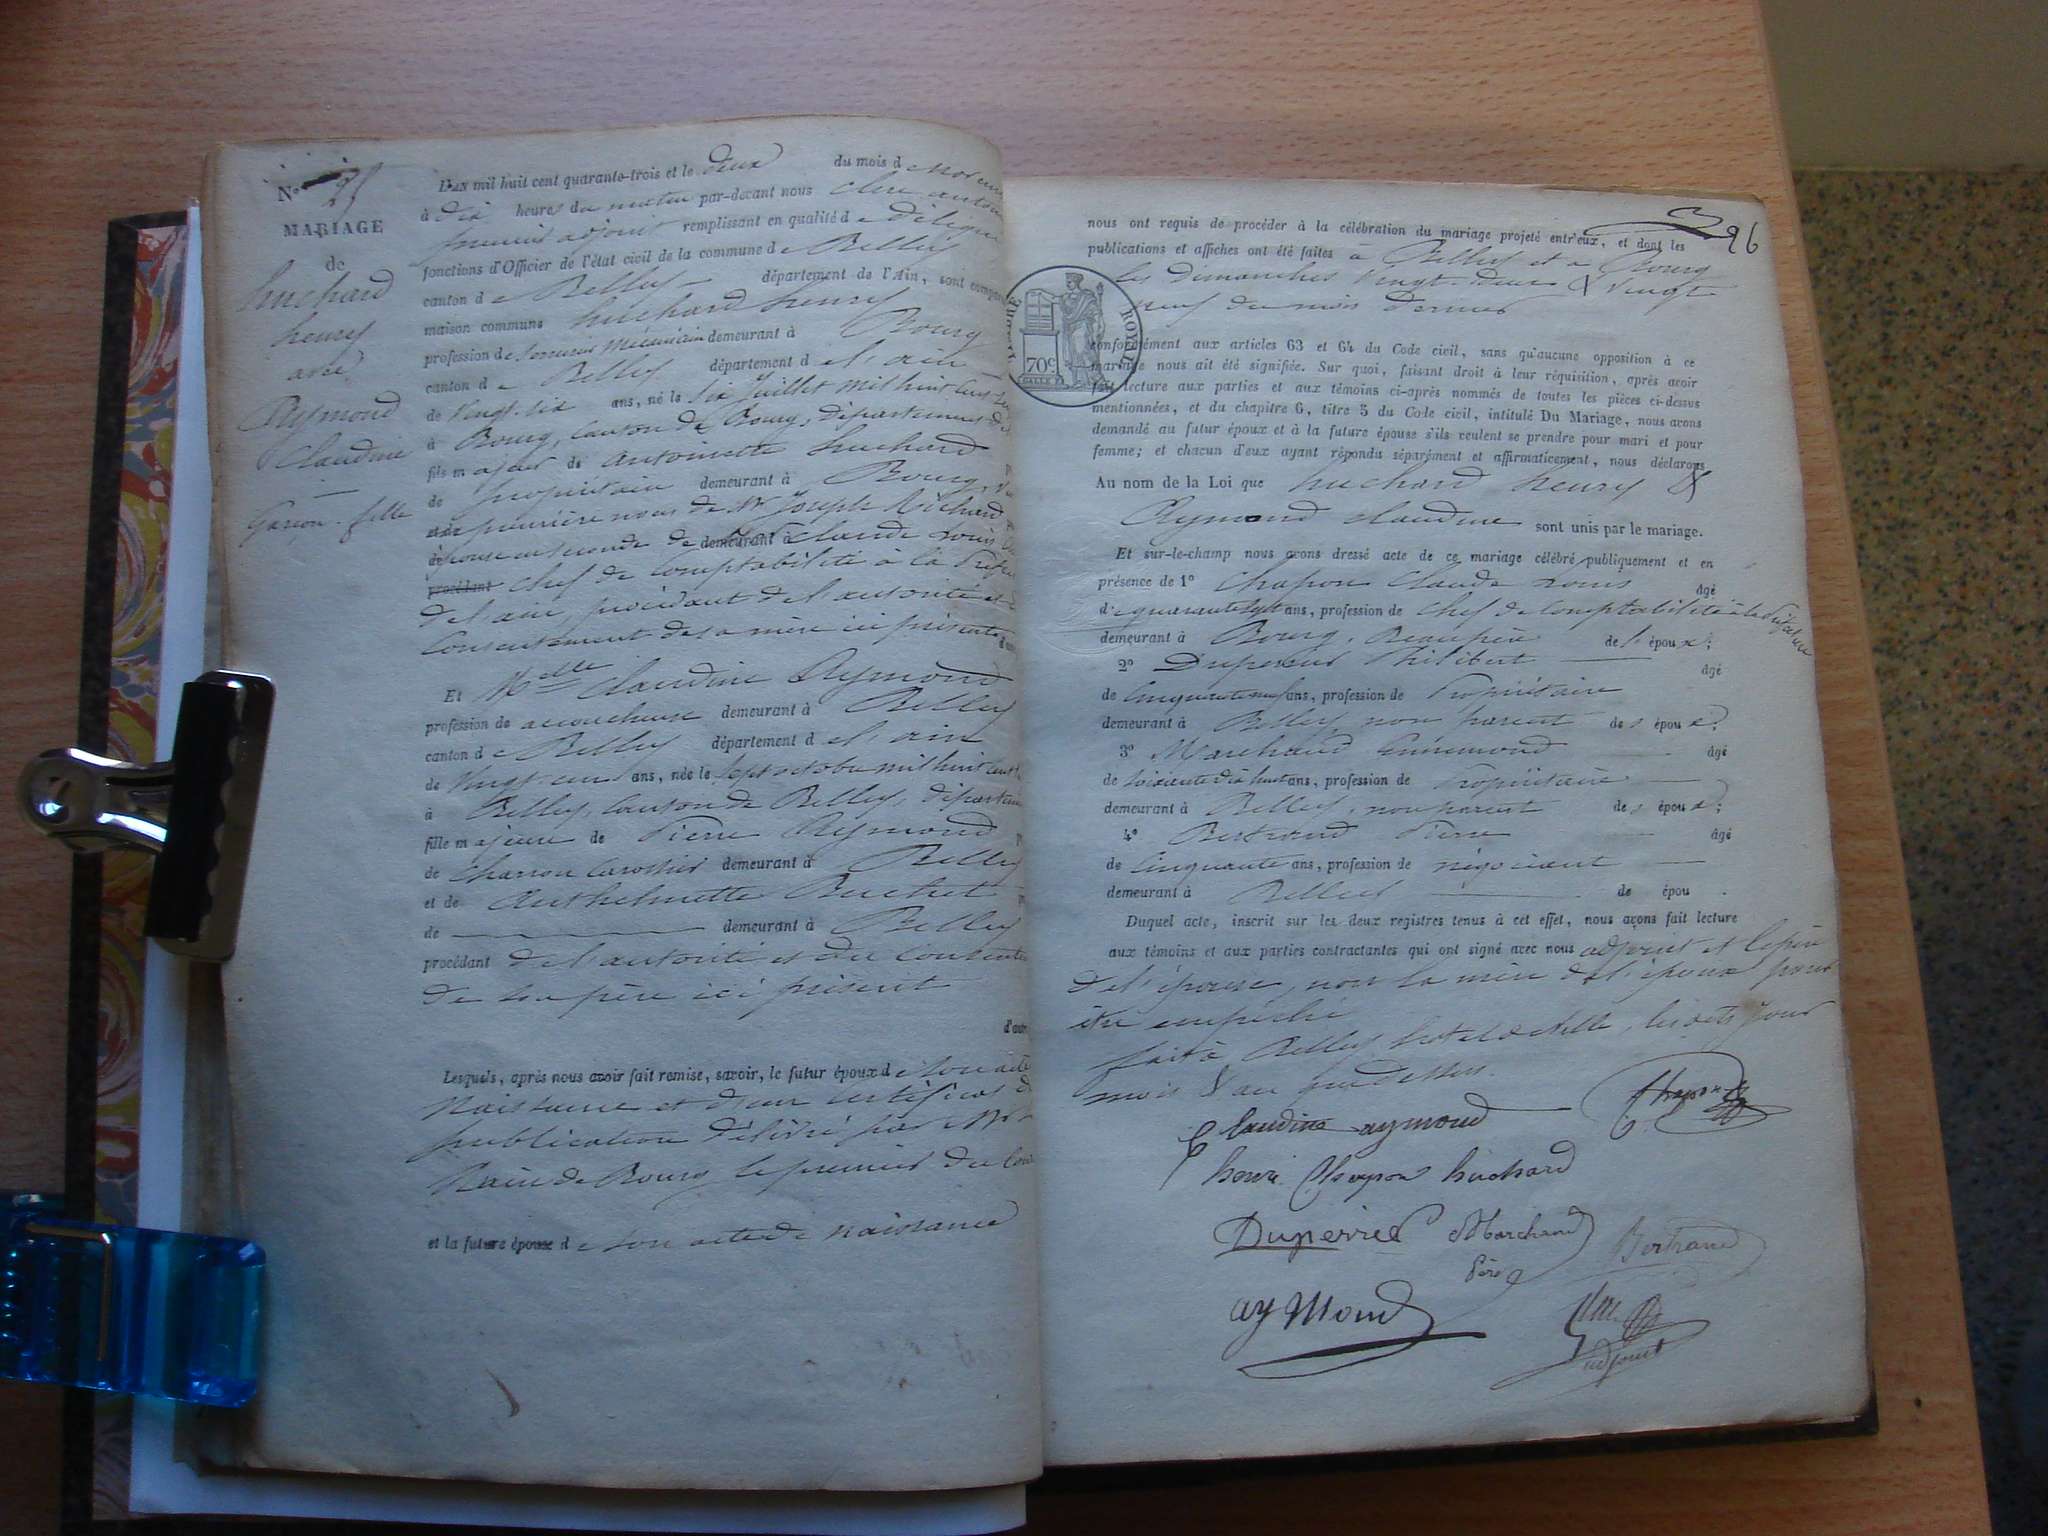 N° 25
MARIAGE
de
huchard
henry
avec
Aymond
Claudine
Garçon. fille
L'AN mil huit cent quarante-trois et le deux du mois de
à dix heures du matin par-devant nous
premier adjoint remplissant en qualité de
fonctions d'Officier de l'état civil de la commune de Belley
canton de Belley département de l'Ain, sont
maison commune huchard henry
profession de Serrurier Mécanicien demeurant à Bourg
canton de Belley département de l'ain
de Vingt-six ans, né le six Juillet mil huit cent
à Bourg, Canton de Bourg, département de
fils majeur de antoinette huchard
de propriétaire demeurant à Bourg,
première noces de Mr Joseph Richard
épouse en seconde de demeurant à Claude Louis
procédant chef de comptabilité à la
de l'ain, procédant de l'autorité et
Consentement de sa mère ici présente
Et Melle Claudine Aymond
profession de accoucheuse demeurant à Belley
canton de Belley département de l'ain
de Vingt-un ans, née le sept octobre mil huit cent
à Belley, Canton de Belley,
fille majeure de Pierre Aymond
de Charron Carossier demeurant à Belley
et de Anthelmette Buchet
de demeurant à Belley
procédant de l'autorité et du
de son père ici présent
Lesquels, après nous avoir fait remise, savoir, le futur époux de son acte
Naissance et d'un certificat de
publication délivré par Mr
Maire de Bourg le premier du
et la future épouse de son acte de naissance
96
nous ont requis de procéder à la célébration du mariage projeté entr'eux, et dont les
publications et affiches ont été faites à Belley et a Bourg
les dimanches Vingt-deux & Vingt
neuf du mois dernier
ROYAL
70c
conformément aux articles 63 et 64 du Code civil, sans qu'aucune opposition à ce
mariage nous ait été signifiée. Sur quoi, faisant droit à leur réquisition, après avoir
fait lecture aux parties et aux témoins ci-après nommés de toutes les pièces ci-dessus
mentionnées, et du chapitre 6, titre 5 du Code civil, intitulé Du Mariage, nous avons
demandé au futur époux et à la future épouse s'ils veulent se prendre pour mari et pour
femme; et chacun d'eux ayant répondu séparément et affirmativement, nous déclarons
Au nom de la Loi que huchard henry &
Aymond Claudine sont unis par le mariage.
Et sur-le-champ nous avons dressé acte de ce mariage célébré publiquement et en
présence de 1° Chapon Claude Louis âgé
de quarante sept ans, profession de Chef de Comptabilité à la Préfecture
demeurant à Bourg, Beaupère de l'époux;
2° Duperret Philibert âgé
de Cinquante neuf ans, profession de Propriétaire
demeurant à Belley, non parent des époux;
3° Marchand Guinemond âgé
de soixante dix huit ans, profession de Propriétaire
demeurant à Belley, non parent des époux;
4° Bertrand Pierre âgé
de Cinquante ans, profession de négociant
demeurant à Belley de épou .
Duquel acte, inscrit sur les deux registres tenus à cet effet, nous avons fait lecture
aux témoins et aux parties contractantes qui ont signé avec nous adjoint et le père
de l'épouse, non la mère de l'époux pour
être empêché
fait à Belley hotel de Ville, les dits Jour
mois & an que dessus.
Claudine aymond Chapon
henri Chapon huchard
Duperret Marchand Bertrand
Père
ayMond
adjoint